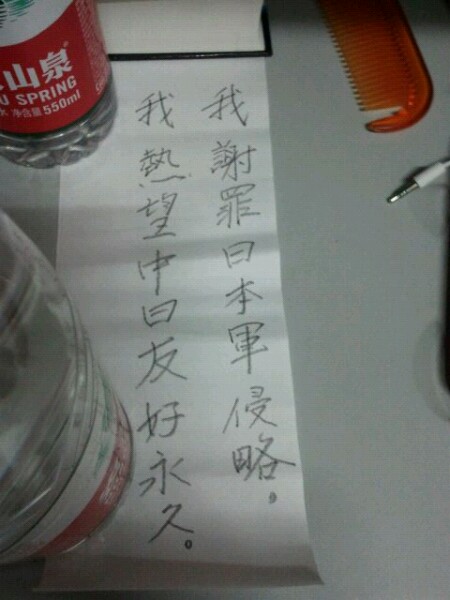 我謝罪日本軍侵略，
我熱望中日友好永久。
山泉
SPRING
净含量550ml